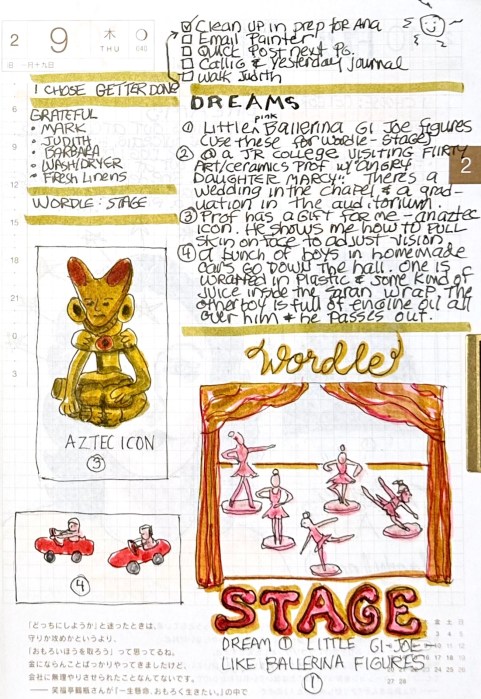 2
9
木
THU
日 一月十九日
Clean up in prep for Ana
Email Painter
Quick Post next pg.
Callig & Yesterday Journal
Walk Judith
I CHOSE GETTERDONE
GRATEFUL
• MARK
• JUDITH
• BARBARA
• WASH/DRYER
• Fresh Linens
WORDLE: STAGE
DREAMS
pink
① Little Ballerina GI Joe figures
(use these for wordle - stage)
② @ a JR college visiting Flirty
Art/ceramics Prof w/ angry
daughter "Marcy." There's a
wedding in the chapel & a grad-
uation in the auditorium.
③ Prof has a Gift for me - an aztec
icon. He shows me how to pull
skin on face to adjust vision
④ A bunch of boys in homemade
cars go down the hall. One is
wrapped in plastic & some kind of
juice inside the saran wrap. The
other boy is full of engine oil all
over him & he passes out.
2
6
9
12
15
18
21
0
3
AZTEC ICON
③
④
Wordle
STAGE
DREAM ① LITTLE GI-JOE-
LIKE BALLERINA FIGURES
①
「どっちにしようか」と迷ったときは、
守りか攻めかというより、
「おもろいほうを取ろう」って思ってるね。
金にならんことばっかりやってきましたけど、
会社に無理やりやらされたことなんてないです。
── 笑福亭鶴瓶さんが「一生懸命、おもろく生きたい。」の中で